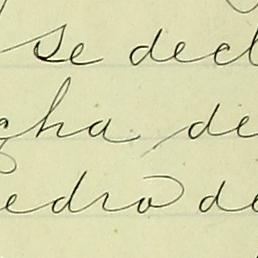 se decl
gha de
edro de